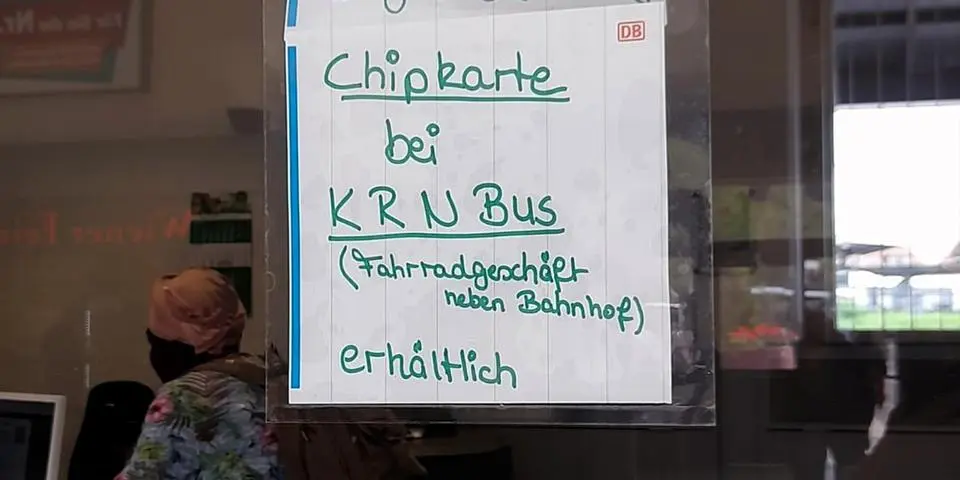 DB
Chipkarte
bei
KRN Bus
(Fahrradgeschäft
neben Bahnhof)
erhältlich